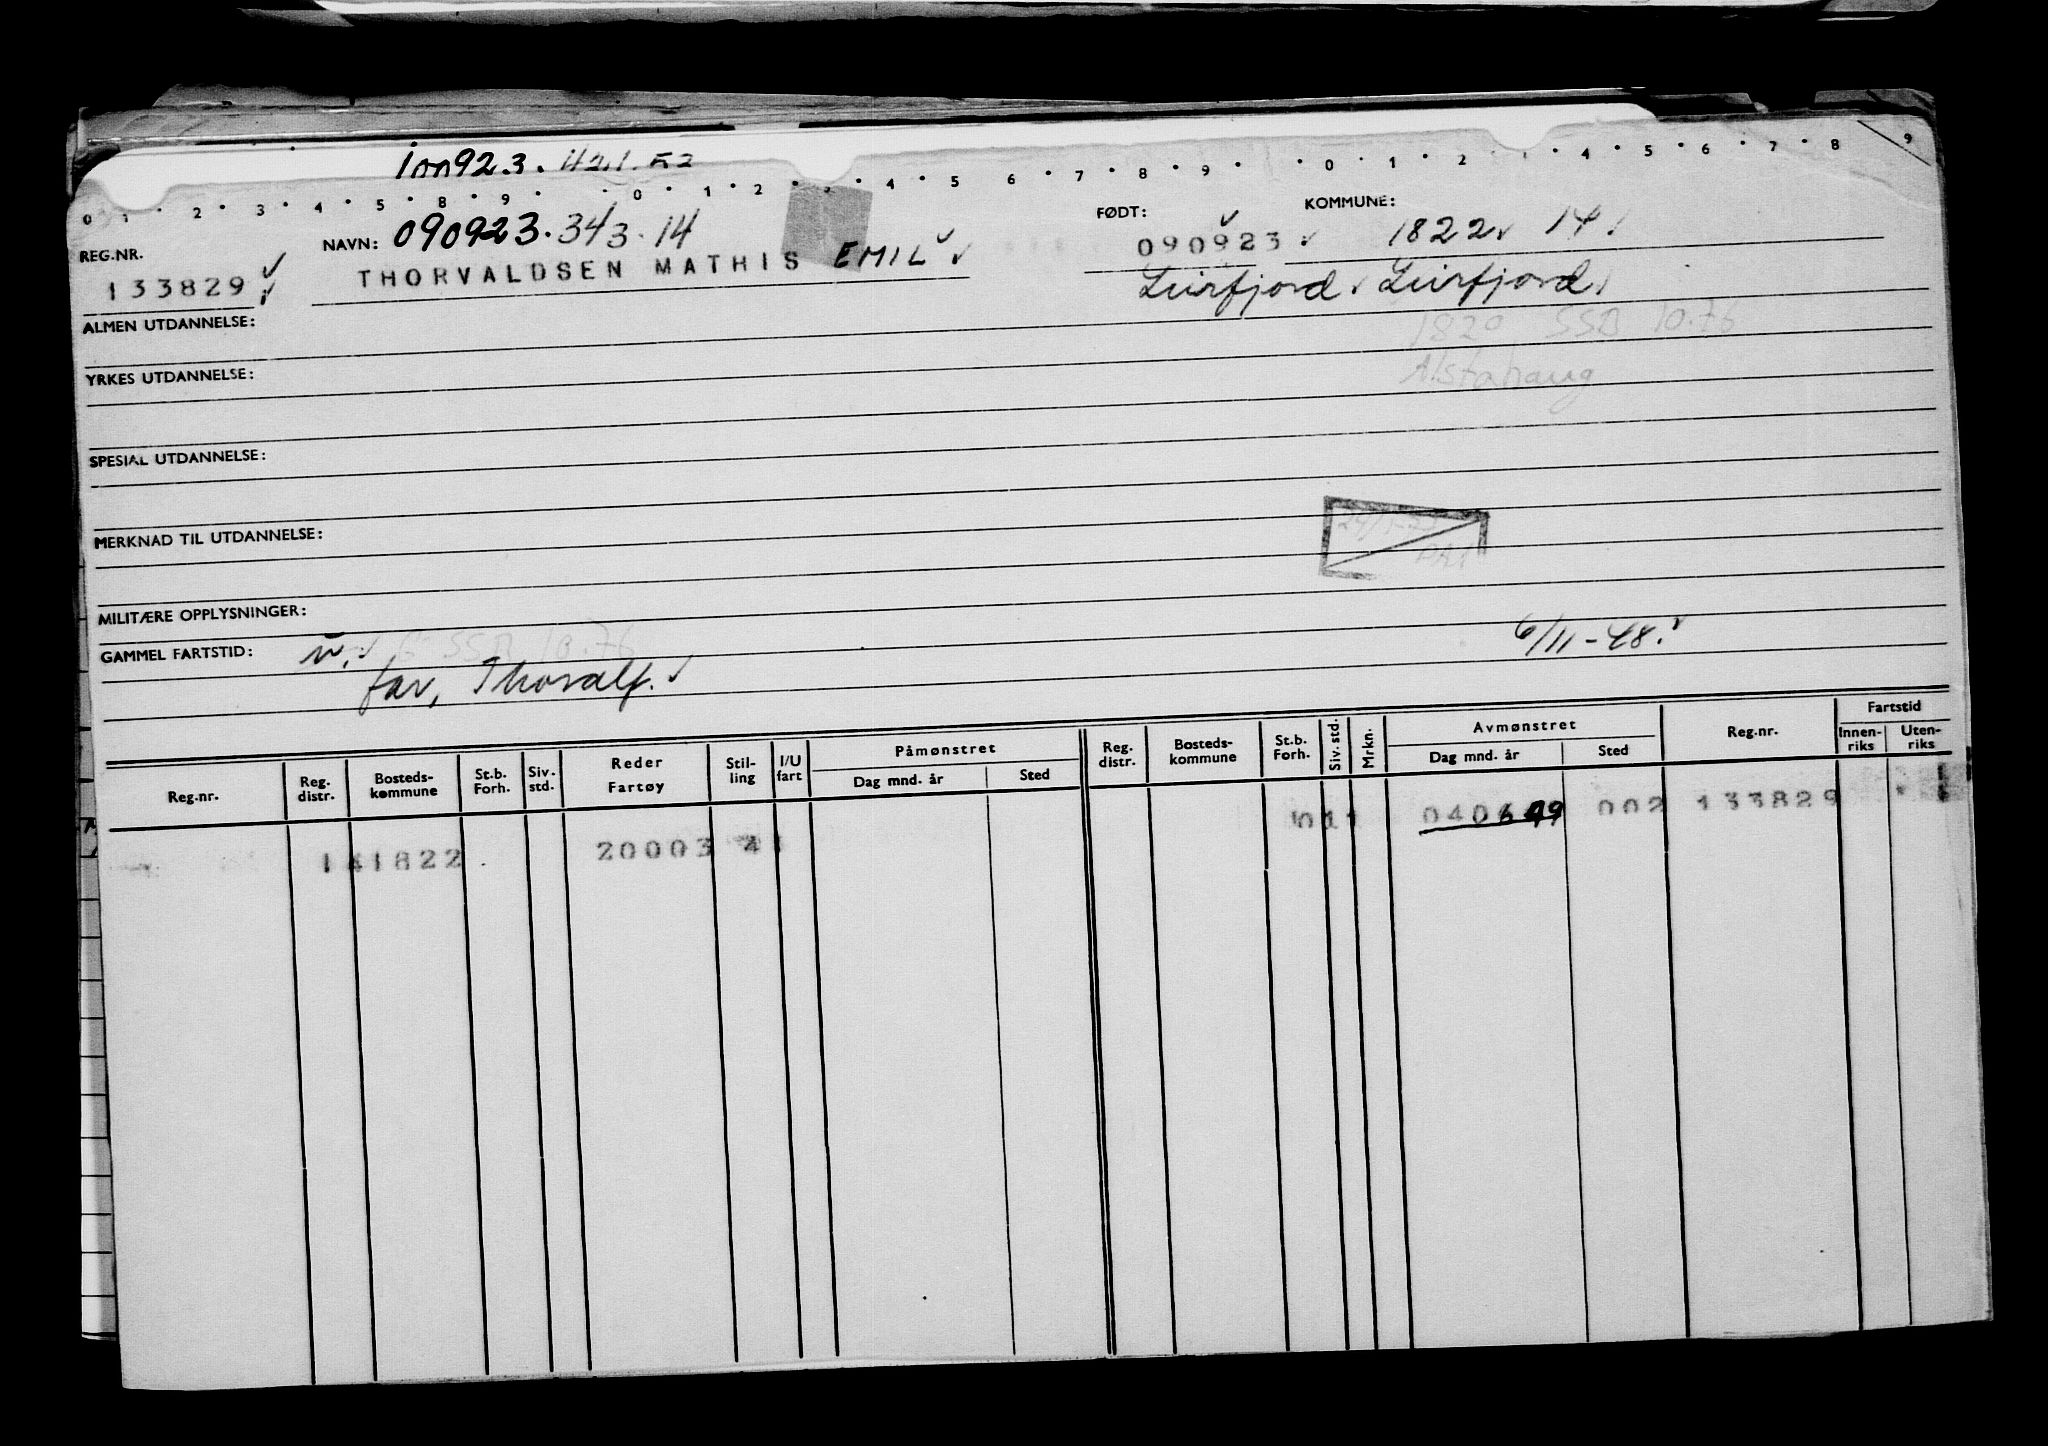 0 1 . 2 . 3 . 4 . 5 . 8 . 9 . . 0 . 1 . 2 . 3 . 4 . 5 6 . 7 . 8 . 9 . . 0 . 1 . 2 . 4 . 5 . 6 . 7 . 8 9
REG.NR. 133829
NAVN: 090923.343.14
THORVALDSEN MATHIS EMIL
FØDT: 090923
KOMMUNE: 1822 14
Leirfjord Leirfjord
ALMEN UTDANNELSE:
1820 SSB 10.76
YRKES UTDANNELSE:
Alstahaug
SPESIAL UTDANNELSE:
MERKNAD TIL UTDANNELSE:
MILITÆRE OPPLYSNINGER:
GAMMEL FARTSTID: SSB 10.76 6/11-48.
far, Thoralf.
Reg.nr. Reg. distr. Bosteds-kommune St.b. Forh. Siv. std. Reder Fartøy Stil-ling I/U fart Påmønstret Dag mnd. år Sted Reg. distr. Bosteds-kommune St.b. Forh. Siv. std. Mrkn. Avmønstret Dag mnd. år Sted Reg.nr. Fartstid Innen-riks Uten-riks
141822 20003 040649 002 133829